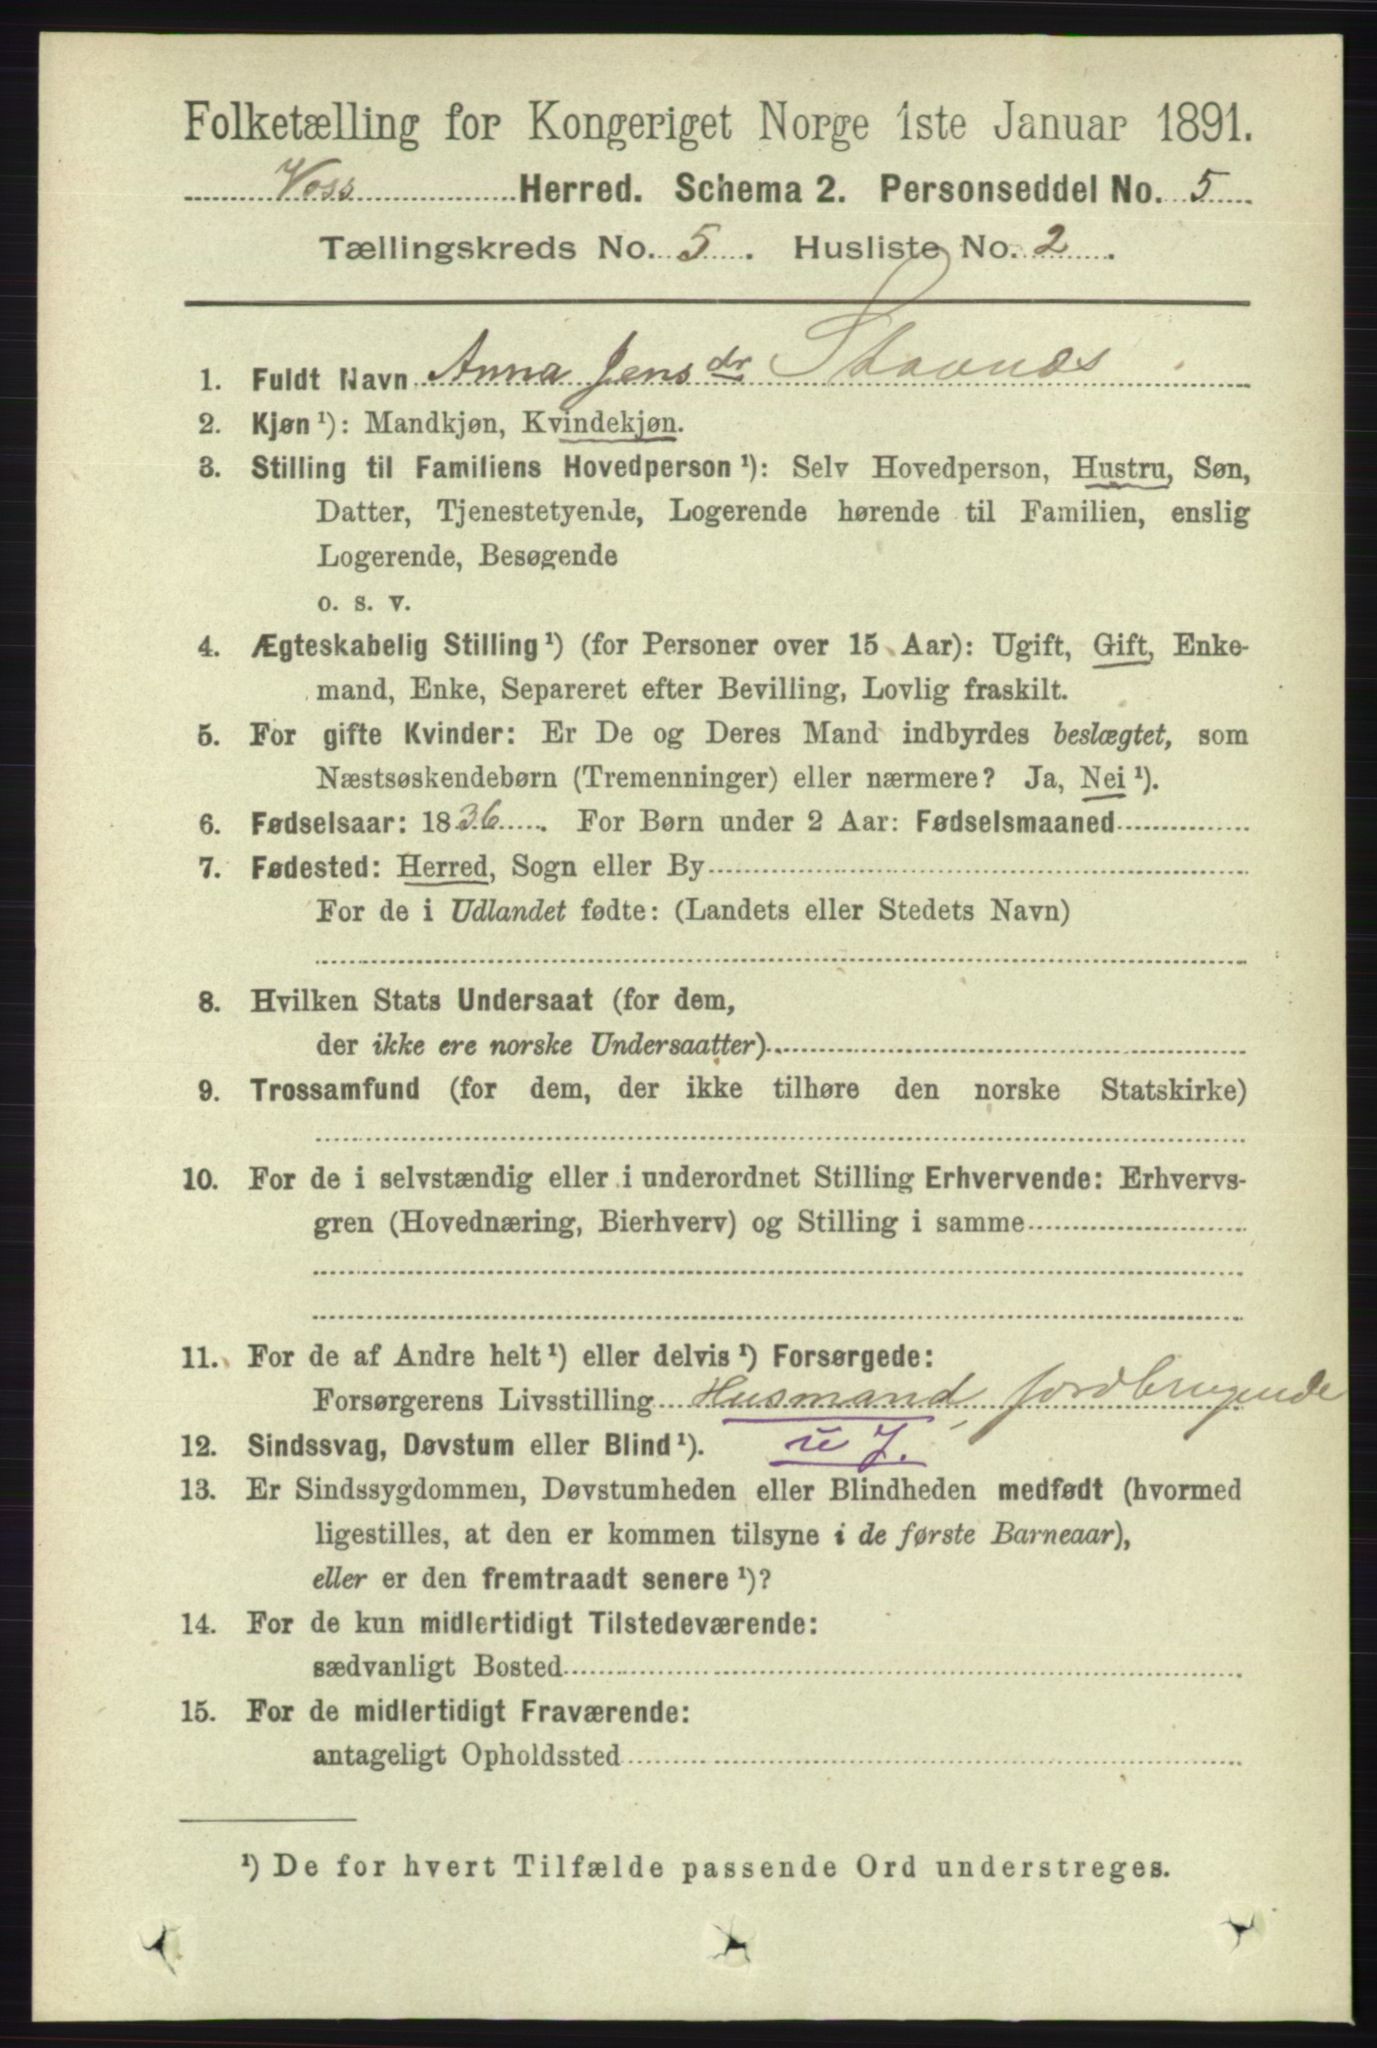 Folketælling for Kongeriget Norge 1ste Januar 1891.
Voss Herred. Schema 2. Personseddel No. 5
Tællingskreds No. 5. Husliste No. 2.
1. Fuldt Navn Anna Jensdr
2. Kjøn ¹): Mandkjøn, Kvindekjøn.
3. Stilling til Familiens Hovedperson ¹): Selv Hovedperson, Hustru, Søn,
Datter, Tjenestetyende, Logerende hørende til Familien, enslig
Logerende, Besøgende
o. s. v.
4. Ægteskabelig Stilling ¹) (for Personer over 15 Aar): Ugift, Gift, Enke-
mand, Enke, Separeret efter Bevilling, Lovlig fraskilt.
5. For gifte Kvinder: Er De og Deres Mand indbyrdes beslægtet, som
Næstsøskendebørn (Tremenninger) eller nærmere? Ja, Nei ¹).
6. Fødselsaar: 1836. For Børn under 2 Aar: Fødselsmaaned
7. Fødested: Herred, Sogn eller By
For de i Udlandet fødte: (Landets eller Stedets Navn)
8. Hvilken Stats Undersaat (for dem,
der ikke ere norske Undersaatter)
9. Trossamfund (for dem, der ikke tilhøre den norske Statskirke)
10. For de i selvstændig eller i underordnet Stilling Erhvervende: Erhvervs-
gren (Hovednæring, Bierhverv) og Stilling i samme
11. For de af Andre helt ¹) eller delvis ¹) Forsørgede:
Forsørgerens Livsstilling Husmand, jordbrugende
12. Sindssvag, Døvstum eller Blind ¹).
13. Er Sindssygdommen, Døvstumheden eller Blindheden medfødt (hvormed
ligestilles, at den er kommen tilsyne i de første Barneaar),
eller er den fremtraadt senere ¹)?
14. For de kun midlertidigt Tilstedeværende:
sædvanligt Bosted
15. For de midlertidigt Fraværende:
antageligt Opholdssted
¹) De for hvert Tilfælde passende Ord understreges.